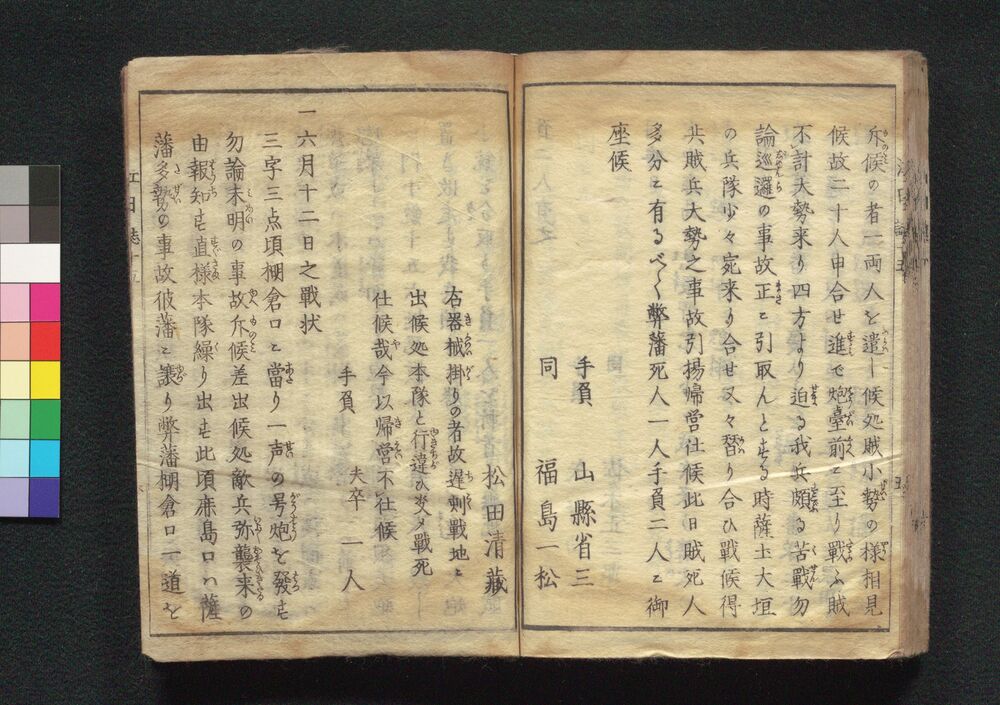 斥候の者一両人を遣し候処賊小勢の様相見
候故二十人申合せ進で炮臺前に至り戦ふ賊
不計大勢来り四方より迫る我兵頗る苦戰勿
論巡邏の事故正に引取んとする時薩土大垣
の兵隊少々宛来り合せ又々
り合ひ戰候得
共賊兵大勢之事故引揚帰営仕候此日賊死人
多分に有るべく弊藩死人一人手負二人に御
座候
手負 山縣省三
同 福島一松
松田清藏
右器械掛りの者故遅刺戰地に
出候処本隊と行違ひ
戰死
仕候哉今以帰営不仕候
手負 夫卒 一人
一六月十二日之戰状
三字三点頃棚倉口に當り一声の号炮を發す
勿論未明の事故斥候差出候処敵兵弥襲来の
由報知す直様本隊繰り出す此頃
島口ハ薩
藩多勢の事故彼藩に譲り弊藩棚倉口一道を
江日誌十五